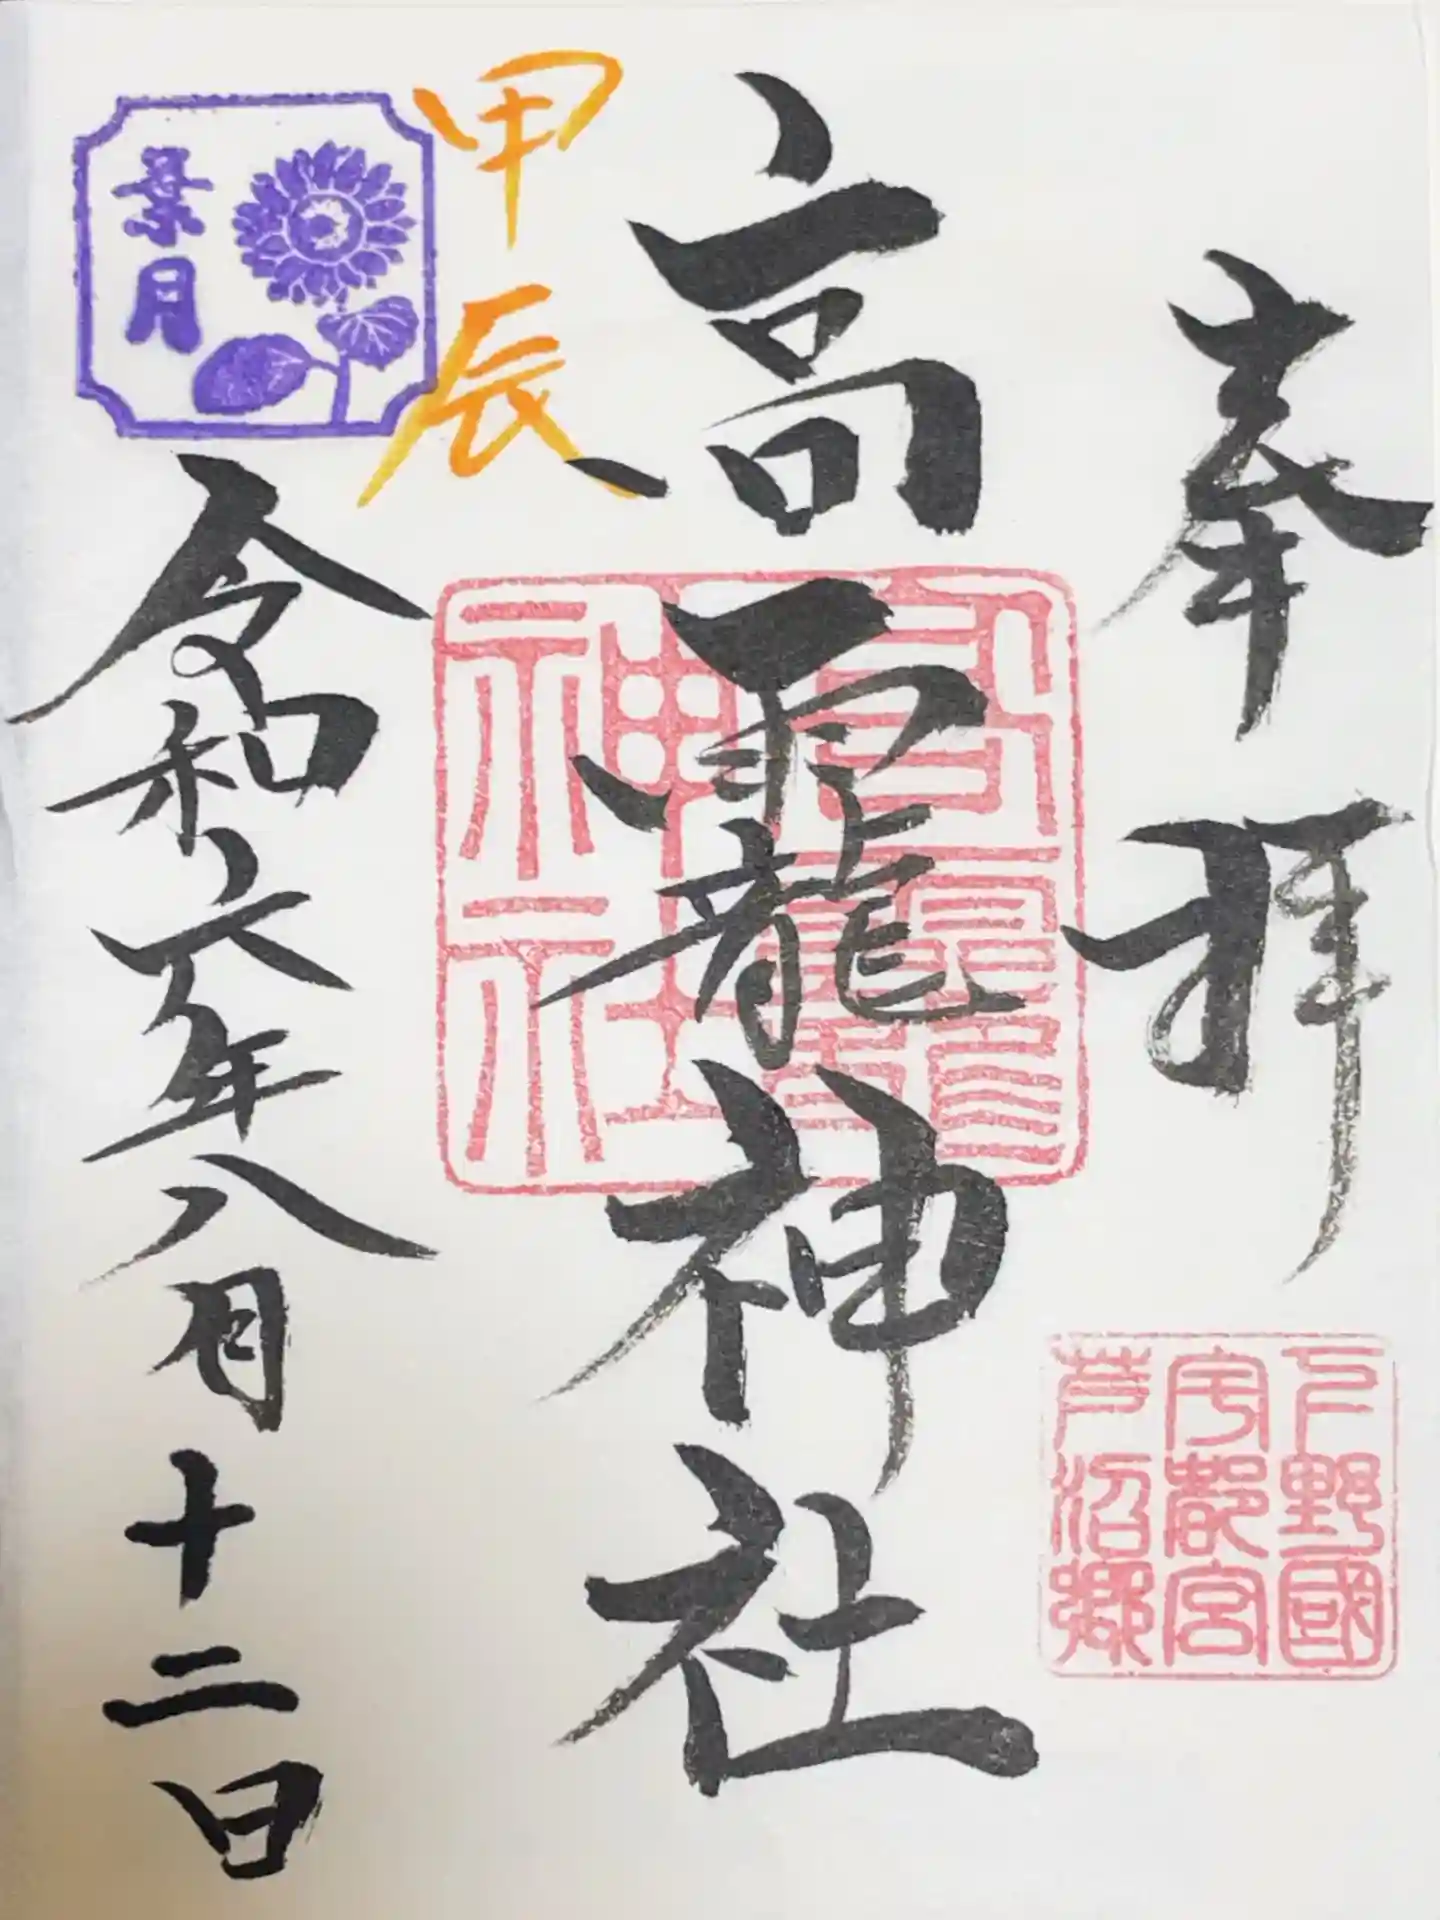 奉拝
下野國
宇都宮
芦沼郷
高龗神社
高龗神社
甲辰
葉月
令和六年八月十二日